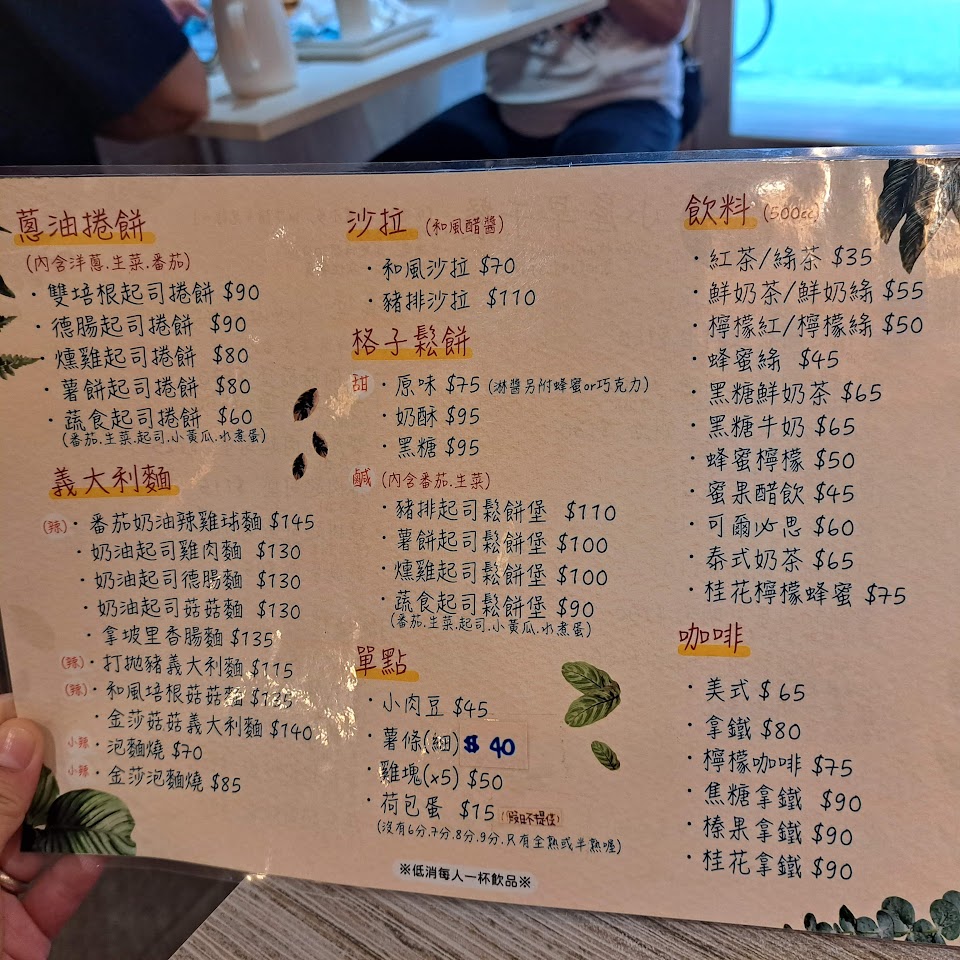 蔥油捲餅
(內含洋蔥.生菜.番茄)
・雙培根起司捲餅 $90
・德腸起司捲餅 $90
・燻雞起司捲餅 $80
・薯餅起司捲餅 $80
・蔬食起司捲餅 $60
(番茄.生菜.起司.小黃瓜.水煮蛋)
義大利麵
(辣)・番茄奶油辣雞球麵 $145
・奶油起司雞肉麵 $130
・奶油起司德腸麵 $130
・奶油起司菇菇麵 $130
・拿坡里香腸麵 $135
(辣)・打拋豬義大利麵 $115
(辣)・和風培根菇菇麵 $135
・金莎菇菇義大利麵 $140
小辣・泡麵燒 $70
小辣・金莎泡麵燒 $85
沙拉 (和風醋醬)
・和風沙拉 $70
・豬排沙拉 $110
格子鬆餅
甜・原味 $75 (淋醬另附蜂蜜or巧克力)
・奶酥 $95
・黑糖 $95
鹹 (內含番茄.生菜)
・豬排起司鬆餅堡 $110
・薯餅起司鬆餅堡 $100
・燻雞起司鬆餅堡 $100
・蔬食起司鬆餅堡 $90
(番茄.生菜.起司.小黃瓜.水煮蛋)
單點
・小肉豆 $45
・薯條(細) $ 40
・雞塊(x5) $50
・荷包蛋 $15 (假日不提供)
(沒有6分,7分,8分,9分,只有全熟或半熟喔)
※低消每人一杯飲品※
飲料 (500cc)
・紅茶/綠茶 $35
・鮮奶茶/鮮奶綠 $55
・檸檬紅/檸檬綠 $50
・蜂蜜綠 $45
・黑糖鮮奶茶 $65
・黑糖牛奶 $65
・蜂蜜檸檬 $50
・蜜果醋飲 $45
・可爾必思 $60
・泰式奶茶 $65
・桂花檸檬蜂蜜 $75
咖啡
・美式 $65
・拿鐵 $80
・檸檬咖啡 $75
・焦糖拿鐵 $90
・榛果拿鐵 $90
・桂花拿鐵 $90